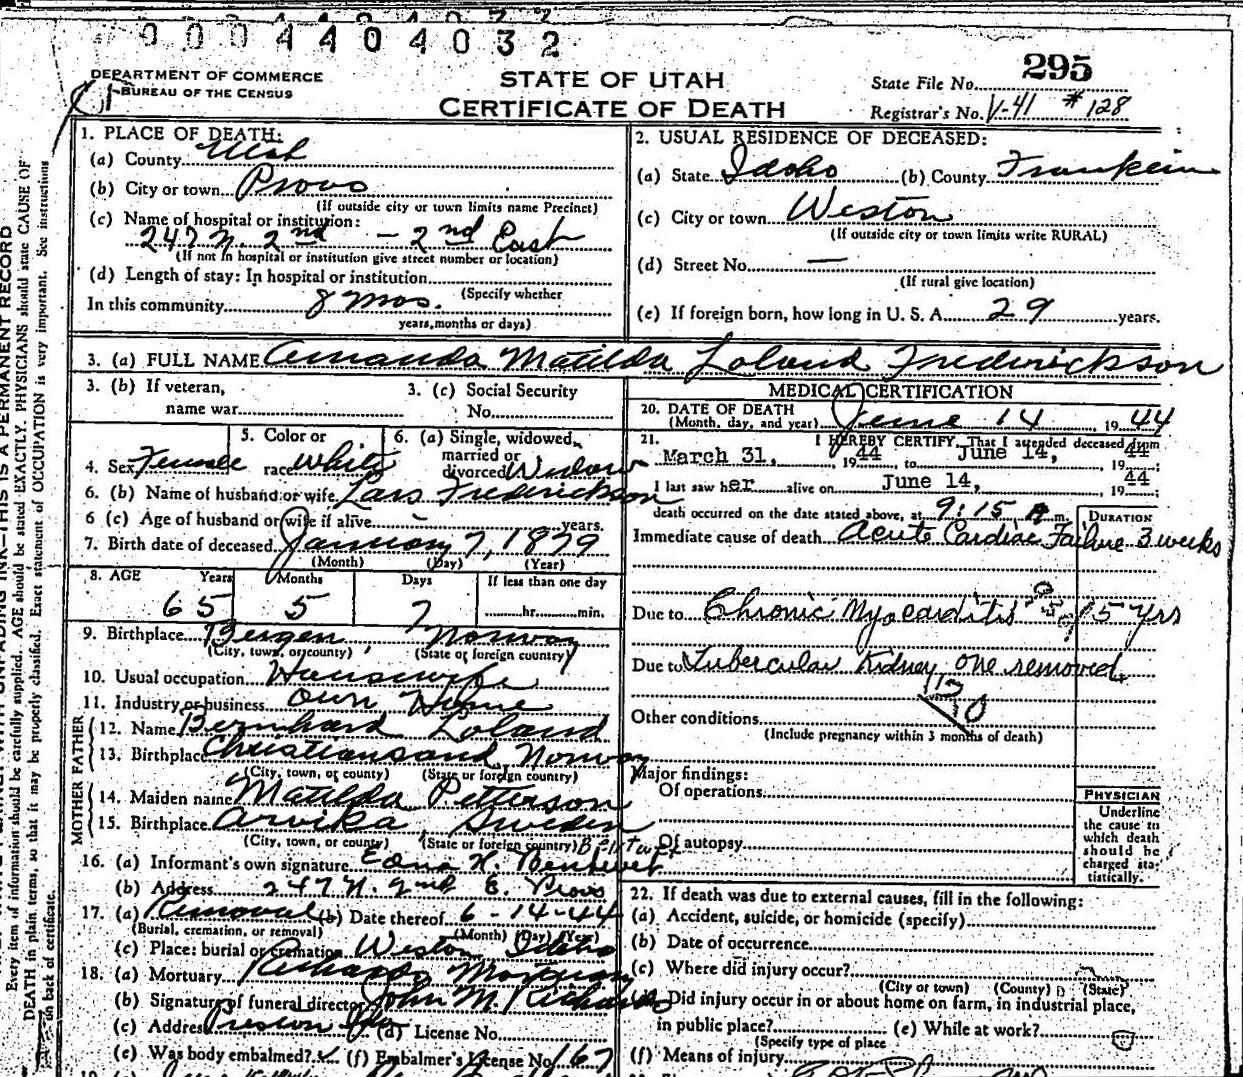 0 0 0 4 4 0 4 0 3 2
DEPARTMENT OF COMMERCE
BUREAU OF THE CENSUS
STATE OF UTAH
CERTIFICATE OF DEATH
State File No. 295
Registrar's No. V-41 #128
1. PLACE OF DEATH:
(a) County Utah
(b) City or town Provo
(If outside city or town limits name Precinct)
(c) Name of hospital or institution:
247 N. 2nd - 2nd East
(If not in hospital or institution give street number or location)
(d) Length of stay: In hospital or institution
(Specify whether
In this community 8 mos.
years, months or days)
2. USUAL RESIDENCE OF DECEASED:
(a) State Idaho (b) County Franklin
(c) City or town Weston
(If outside city or town limits write RURAL)
(d) Street No. —
(If rural give location)
(e) If foreign born, how long in U. S. A. 29 years.
3. (a) FULL NAME Amanda Matilda Loland Frederickson
3. (b) If veteran,
name war
3. (c) Social Security
No.
4. Sex Female
5. Color or
race White
6. (a) Single, widowed,
married or
divorced Widow
6. (b) Name of husband or wife Lars Frederickson
6 (c) Age of husband or wife if alive - years.
7. Birth date of deceased January 7, 1879
(Month) (Day) (Year)
8. AGE Years Months Days If less than one day
65 5 7 hr. min.
9. Birthplace Bergen Norway
(City, town, or county) (State or foreign country)
10. Usual occupation Housewife
11. Industry or business Own Home
FATHER
12. Name Bernhard Loland
13. Birthplace Christiansand Norway
(City, town, or county) (State or foreign country)
MOTHER
14. Maiden name Matilda Petterson
15. Birthplace Arvika Sweden
(City, town, or county) (State or foreign country)
16. (a) Informant's own signature Edna H.
(b) Address 247 N. 2nd E. Provo
17. (a) Removal (b) Date thereof 6-14-44
(Burial, cremation, or removal) (Month) (Day) (Year)
(c) Place: burial or cremation Weston Idaho
18. (a) Mortuary Richards Mortuary
(b) Signature of funeral director John M. Richards
(c) Address Preston Ida (d) License No.
(e) Was body embalmed? ✓ (f) Embalmer's License No. 167
MEDICAL CERTIFICATION
20. DATE OF DEATH
(Month, day, and year) June 14 1944
21. I HEREBY CERTIFY, That I attended deceased from
March 31, 1944 to June 14, 1944
I last saw her alive on June 14, 1944;
death occurred on the date stated above, at 9:15 A m.
DURATION
Immediate cause of death Acute Cardiac Failure 3 weeks
Due to Chronic Myocarditis 15 yrs
Due to Tubercular Kidney, one removed.
Other conditions
(Include pregnancy within 3 months of death)
Major findings:
Of operations
Of autopsy
PHYSICIAN
Underline
the cause to
which death
should be
charged sta-
tistically.
22. If death was due to external causes, fill in the following:
(a) Accident, suicide, or homicide (specify)
(b) Date of occurrence
(c) Where did injury occur?
(City or town) (County) (State)
Did injury occur in or about home on farm, in industrial place,
in public place? (e) While at work?
(Specify type of place
(f) Means of injury
Every item of information should be carefully supplied. AGE should be stated EXACTLY. PHYSICIANS should state CAUSE OF
DEATH in plain terms, so that it may be properly classified. Exact statement of OCCUPATION is very important. See instructions
on back of certificate.